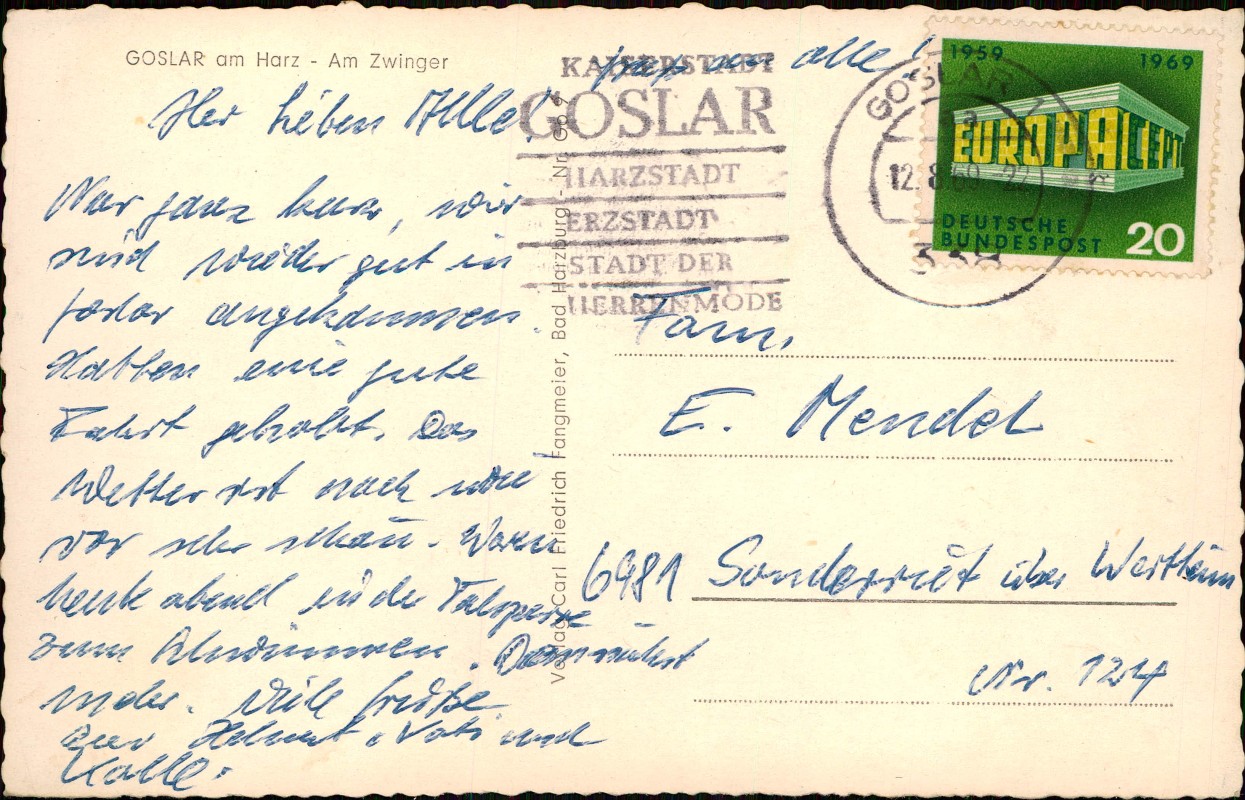 GOSLAR am Harz - Am Zwinger
Ihr lieben Alle!
Nur ganz kurz, wir
sind wieder gut in
Goslar angekommen.
Hatten eine gute
Fahrt gehabt. Das
Wetter ist nach wie
vor sehr schön. Waren
heute abend in der Talsperre
zum Schwimmen. Demnächst
mehr. Viele Grüße
Euer Helmut, Vati und
Kalle.
alle!
Verlag Carl Friedrich Fangmeier, Bad Harzburg
KAISERSTADT
GOSLAR
HARZSTADT
ERZSTADT
STADT DER
HERRENMODE
GOSLAR 1
12.8.69-22
338
1959 1969
EUROPA CEPT
DEUTSCHE
BUNDESPOST 20
Fam.
E. Mendel
6981 Sonderriet über Wertheim
Nr. 124